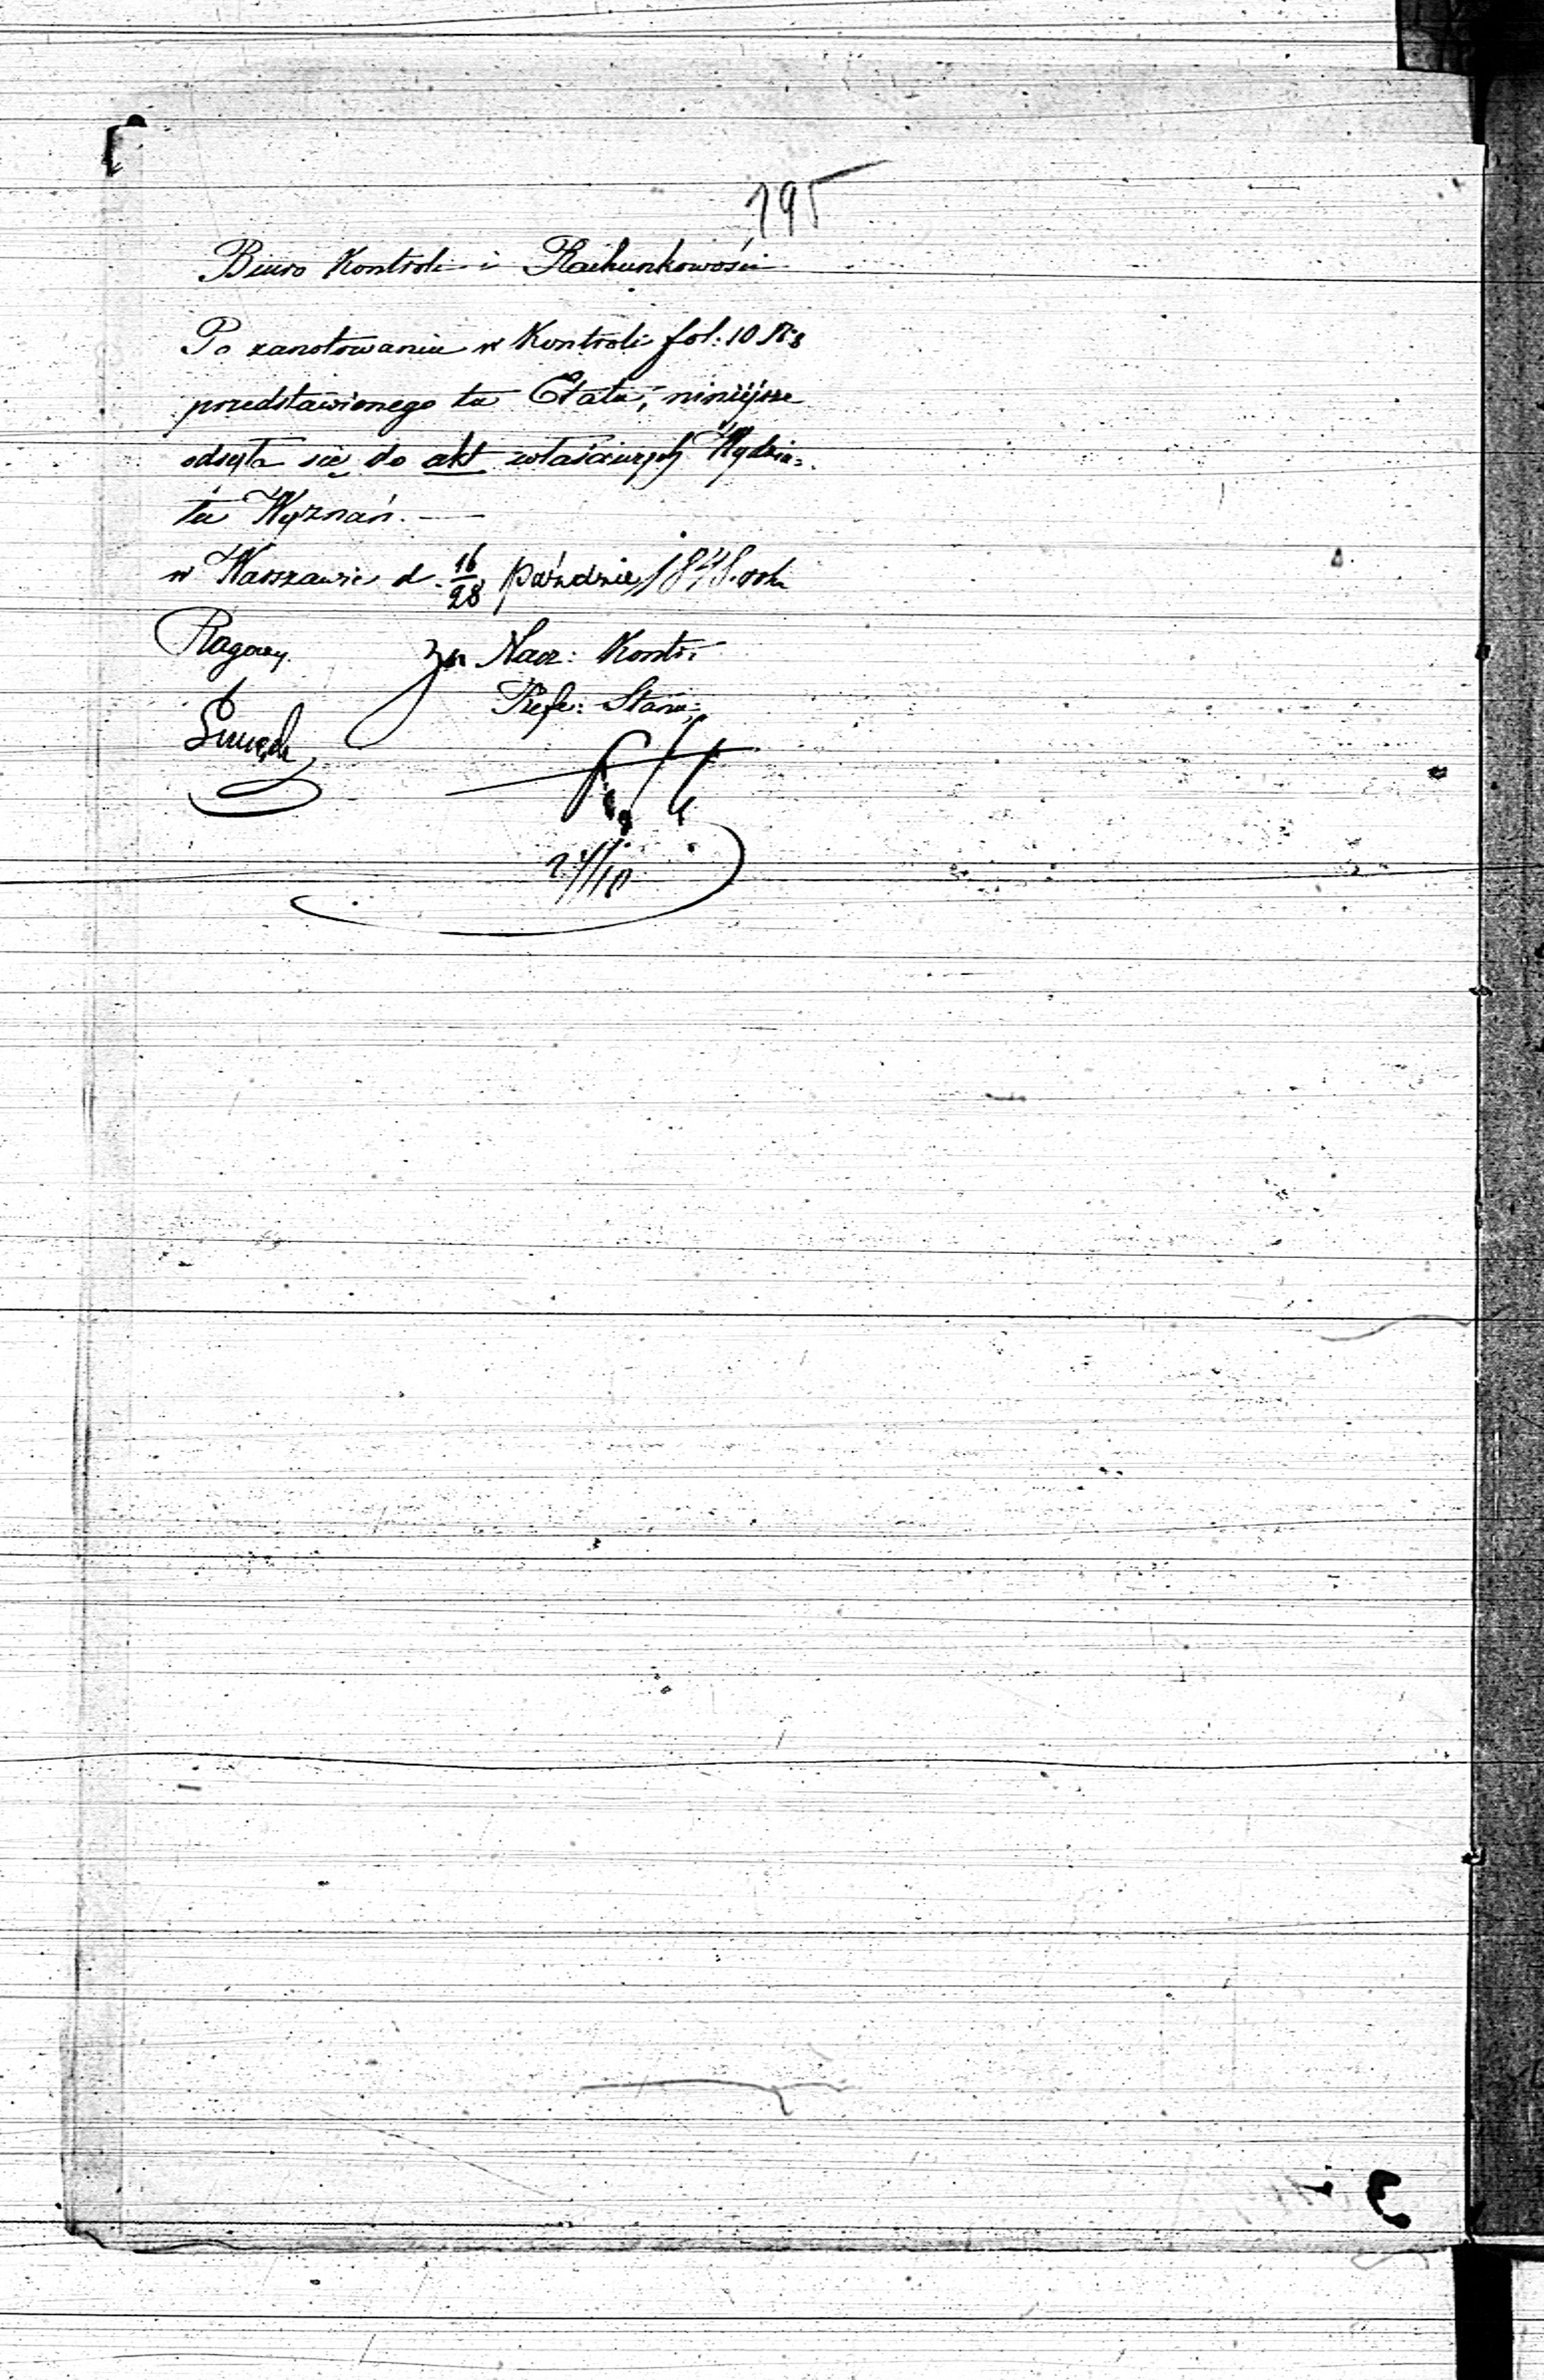 195
Biuro Kontroli i Rachunkowości
Po zanotowaniu w Kontroli fol: 10 N: 8
przedstawionego tu Etatu, niniejsze
odsyła się do akt właściwych Wydzia=
łu Wyznań. —
w Warszawie d. 16/28 Paździer 1848 roku
za Nacz: Kontr:
Refe: Stanu: